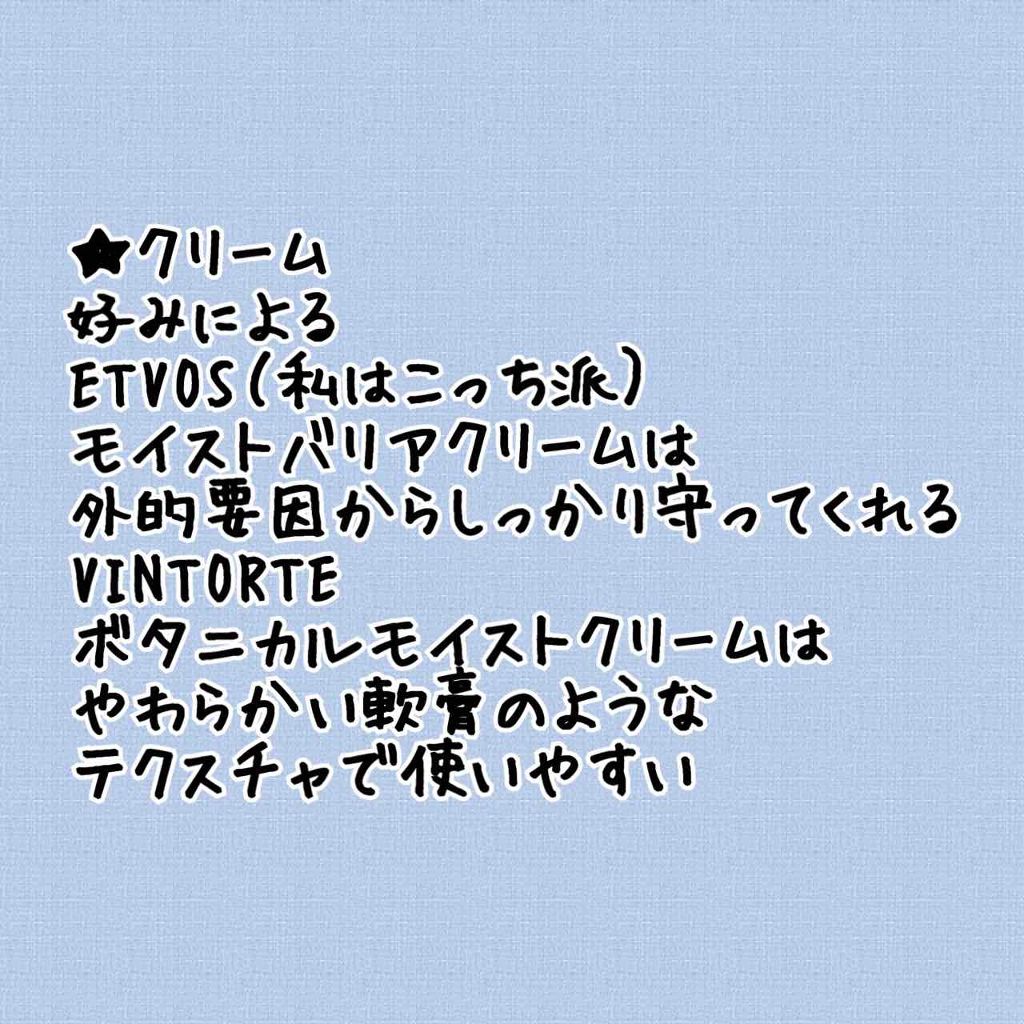 ★クリーム
好みによる
ETVOS(私はこっち派)
モイストバリアクリームは
外的要因からしっかり守ってくれる
VINTORTE
ボタニカルモイストクリームは
やわらかい軟膏のような
テクスチャで使いやすい